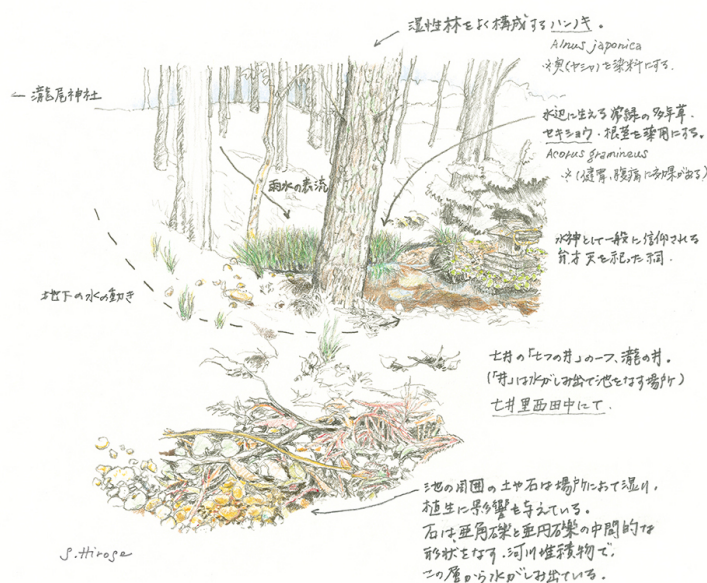 湿性林をよく構成するハンノキ。
Alnus japonica
※実(ヤシャ)を染料にする。
← 瀧尾神社
水辺に生える常緑の多年草。
セキショウ・根茎を薬用にする。
Acorus gramineus
※(健胃、腹痛に効果がある)
雨水の表流
水神として一般に信仰される
弁才天を祀った祠。
地下の水の動き
七井の「七つの井」の一つ、瀧の井。
(「井」は水がしみ出て池をなす場所)
七井里西田中にて.
池の周囲の土や石は場所において湿り、
植生に影響を与えている。
石は、亜角礫と亜円礫の中間的な
形状をなす.河川堆積物で、
この層から水がしみ出ている。
S.Hirose